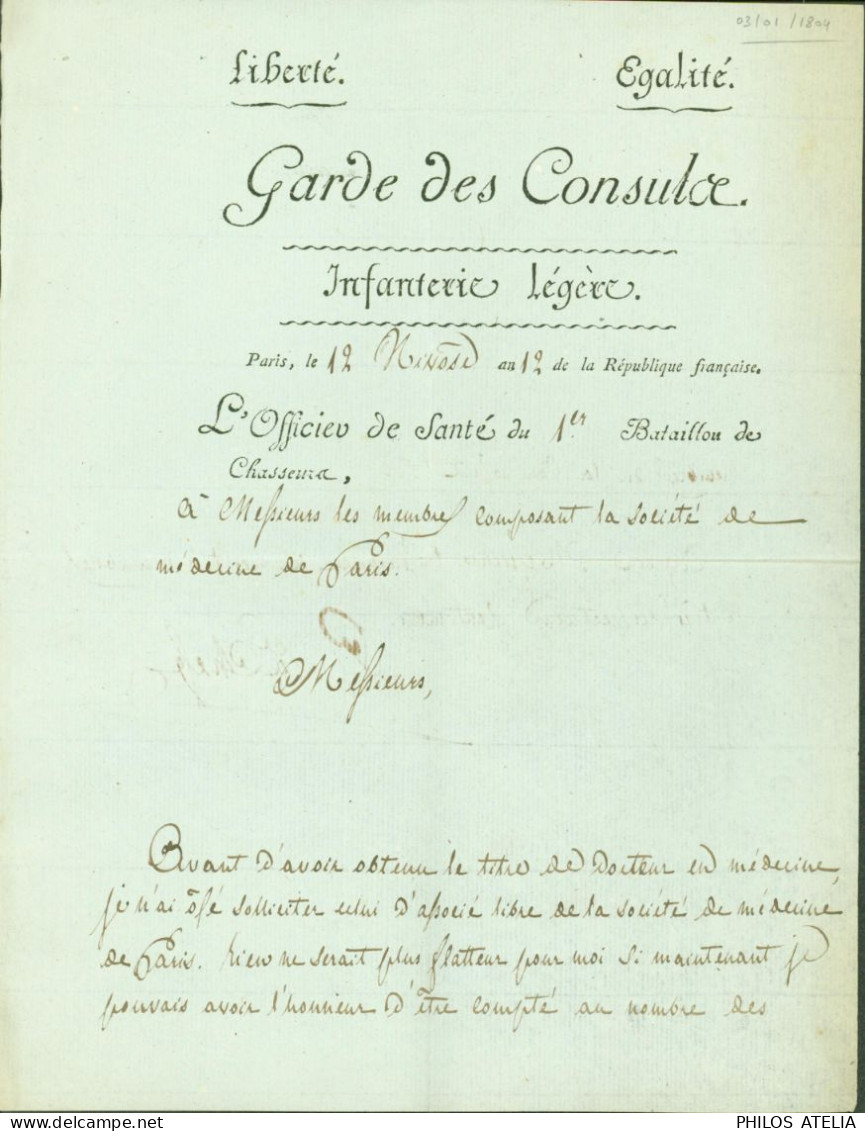 03/01/1804
Liberté. Egalité.
Garde des Consuls.
Infanterie Légère.
Paris, le 12 Nivose an 12 de la République française.
L'Officier de Santé du 1er Bataillon de
Chasseurs,
A Messieurs les membres composant la société de
médecine de Paris.
Messieurs,
Avant d'avoir obtenu le titre de Docteur en médecine,
je n'ai osé solliciter celui d'associé libre de la société de médecine
de Paris. rien ne serait plus flatteur pour moi si maintenant je
pouvais avoir l'honneur d'être compté au nombre des
PHILOS ATELIA